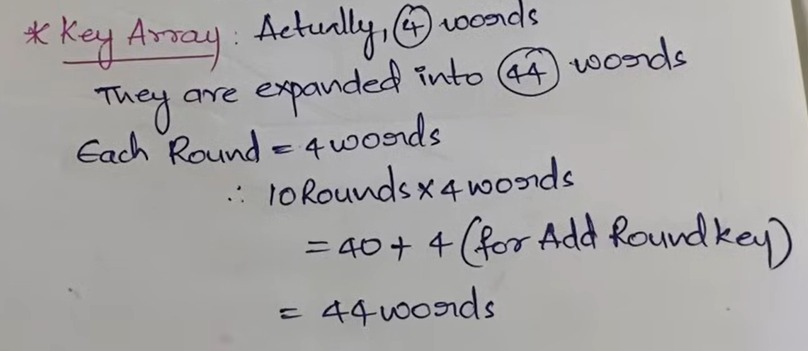 * Key Array : Actually, 4 words
They are expanded into 44 words
Each Round = 4 words
∴ 10 Rounds × 4 words
= 40 + 4 (for Add Round key)
= 44 words